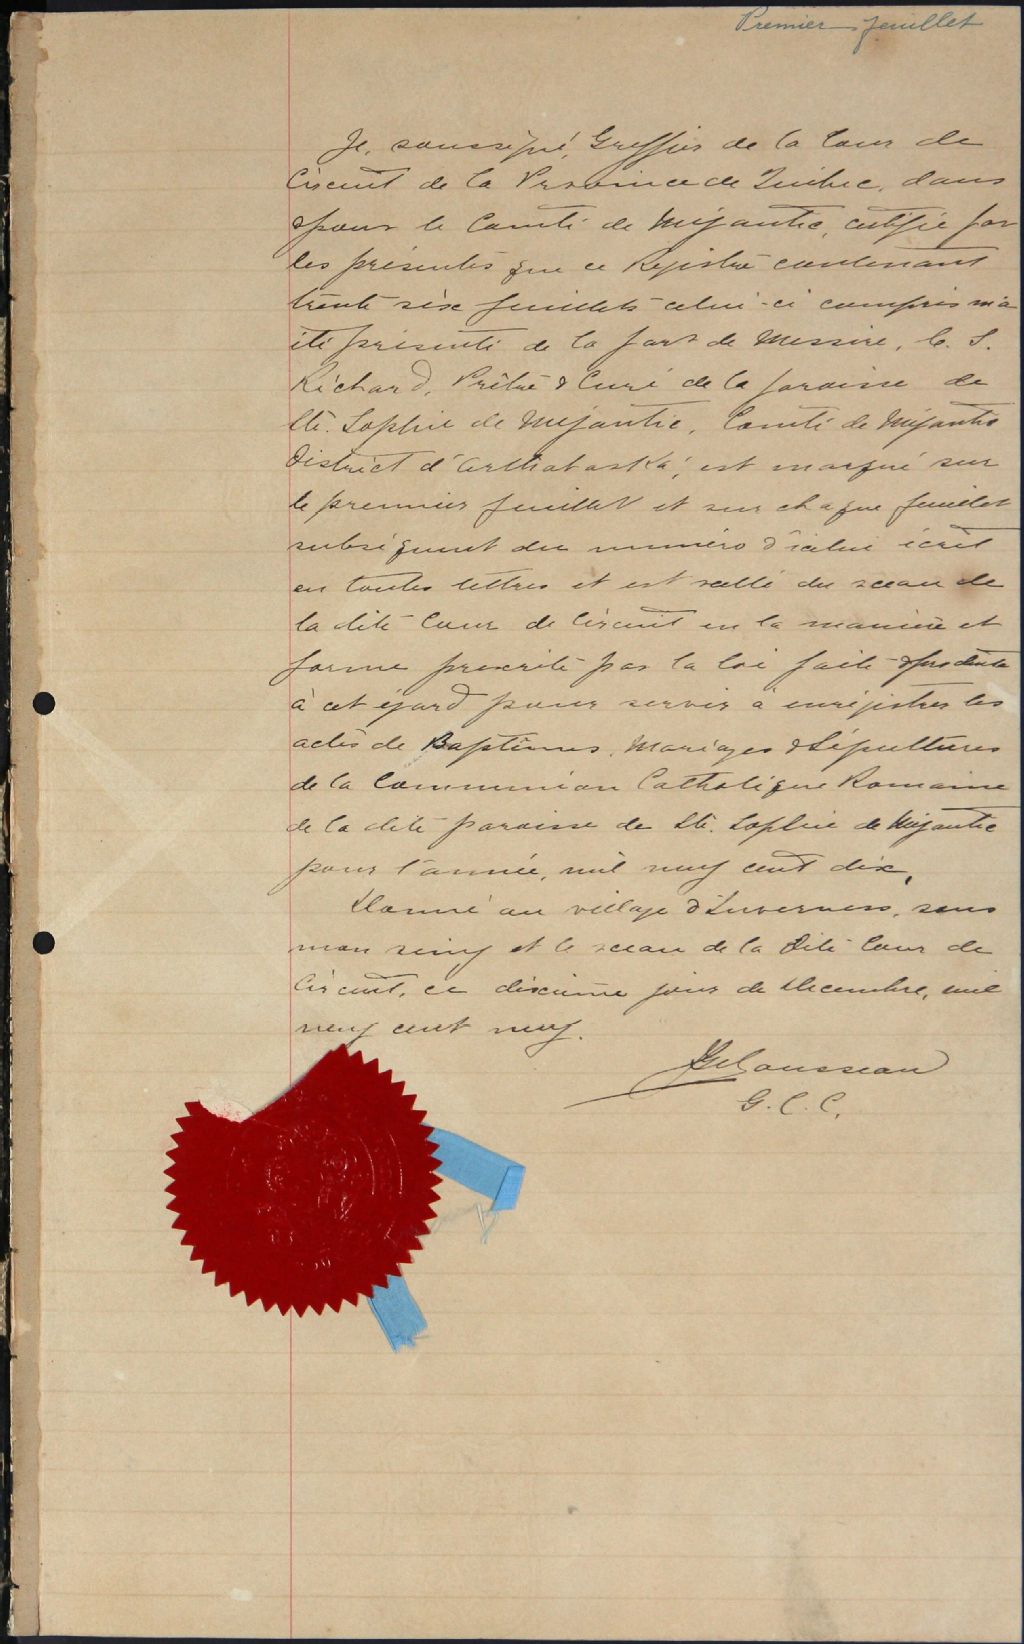 Premier feuillet
Je, soussigné, Greffier de la Cour de
Circuit de la Province de Québec, dans
& pour le Comté de Mégantic, certifie par
les présentes que ce Régistre contenant
trente six feuillets celui-ci compris m'a
été présenté de la part de Messire, C. S.
Richard, Prêtre & Curé de la paroisse de
Ste. Sophie de Mégantic, Comté de Mégantic
District d'Arthabaska, est marqué sur
le premier feuillet et sur chaque feuillet
subséquent du numéro d'icelui écrit
en toutes lettres et est scellé du sceau de
la dite Cour de Circuit en la manière et
forme prescrite par la loi faite & produite
à cet égard pour servir à enrégistrer les
actes de Baptêmes, Mariages & Sépultures
de la Communion Catholique Romaine
de la dite paroisse de Ste. Sophie de Mégantic
pour l'année, mil neuf cent dix.
Donné au village d'Inverness, sous
mon seing et le sceau de la dite Cour de
Circuit, ce dixième jour de Décembre, mil
neuf cent neuf.
Rousseau
G. C. C.